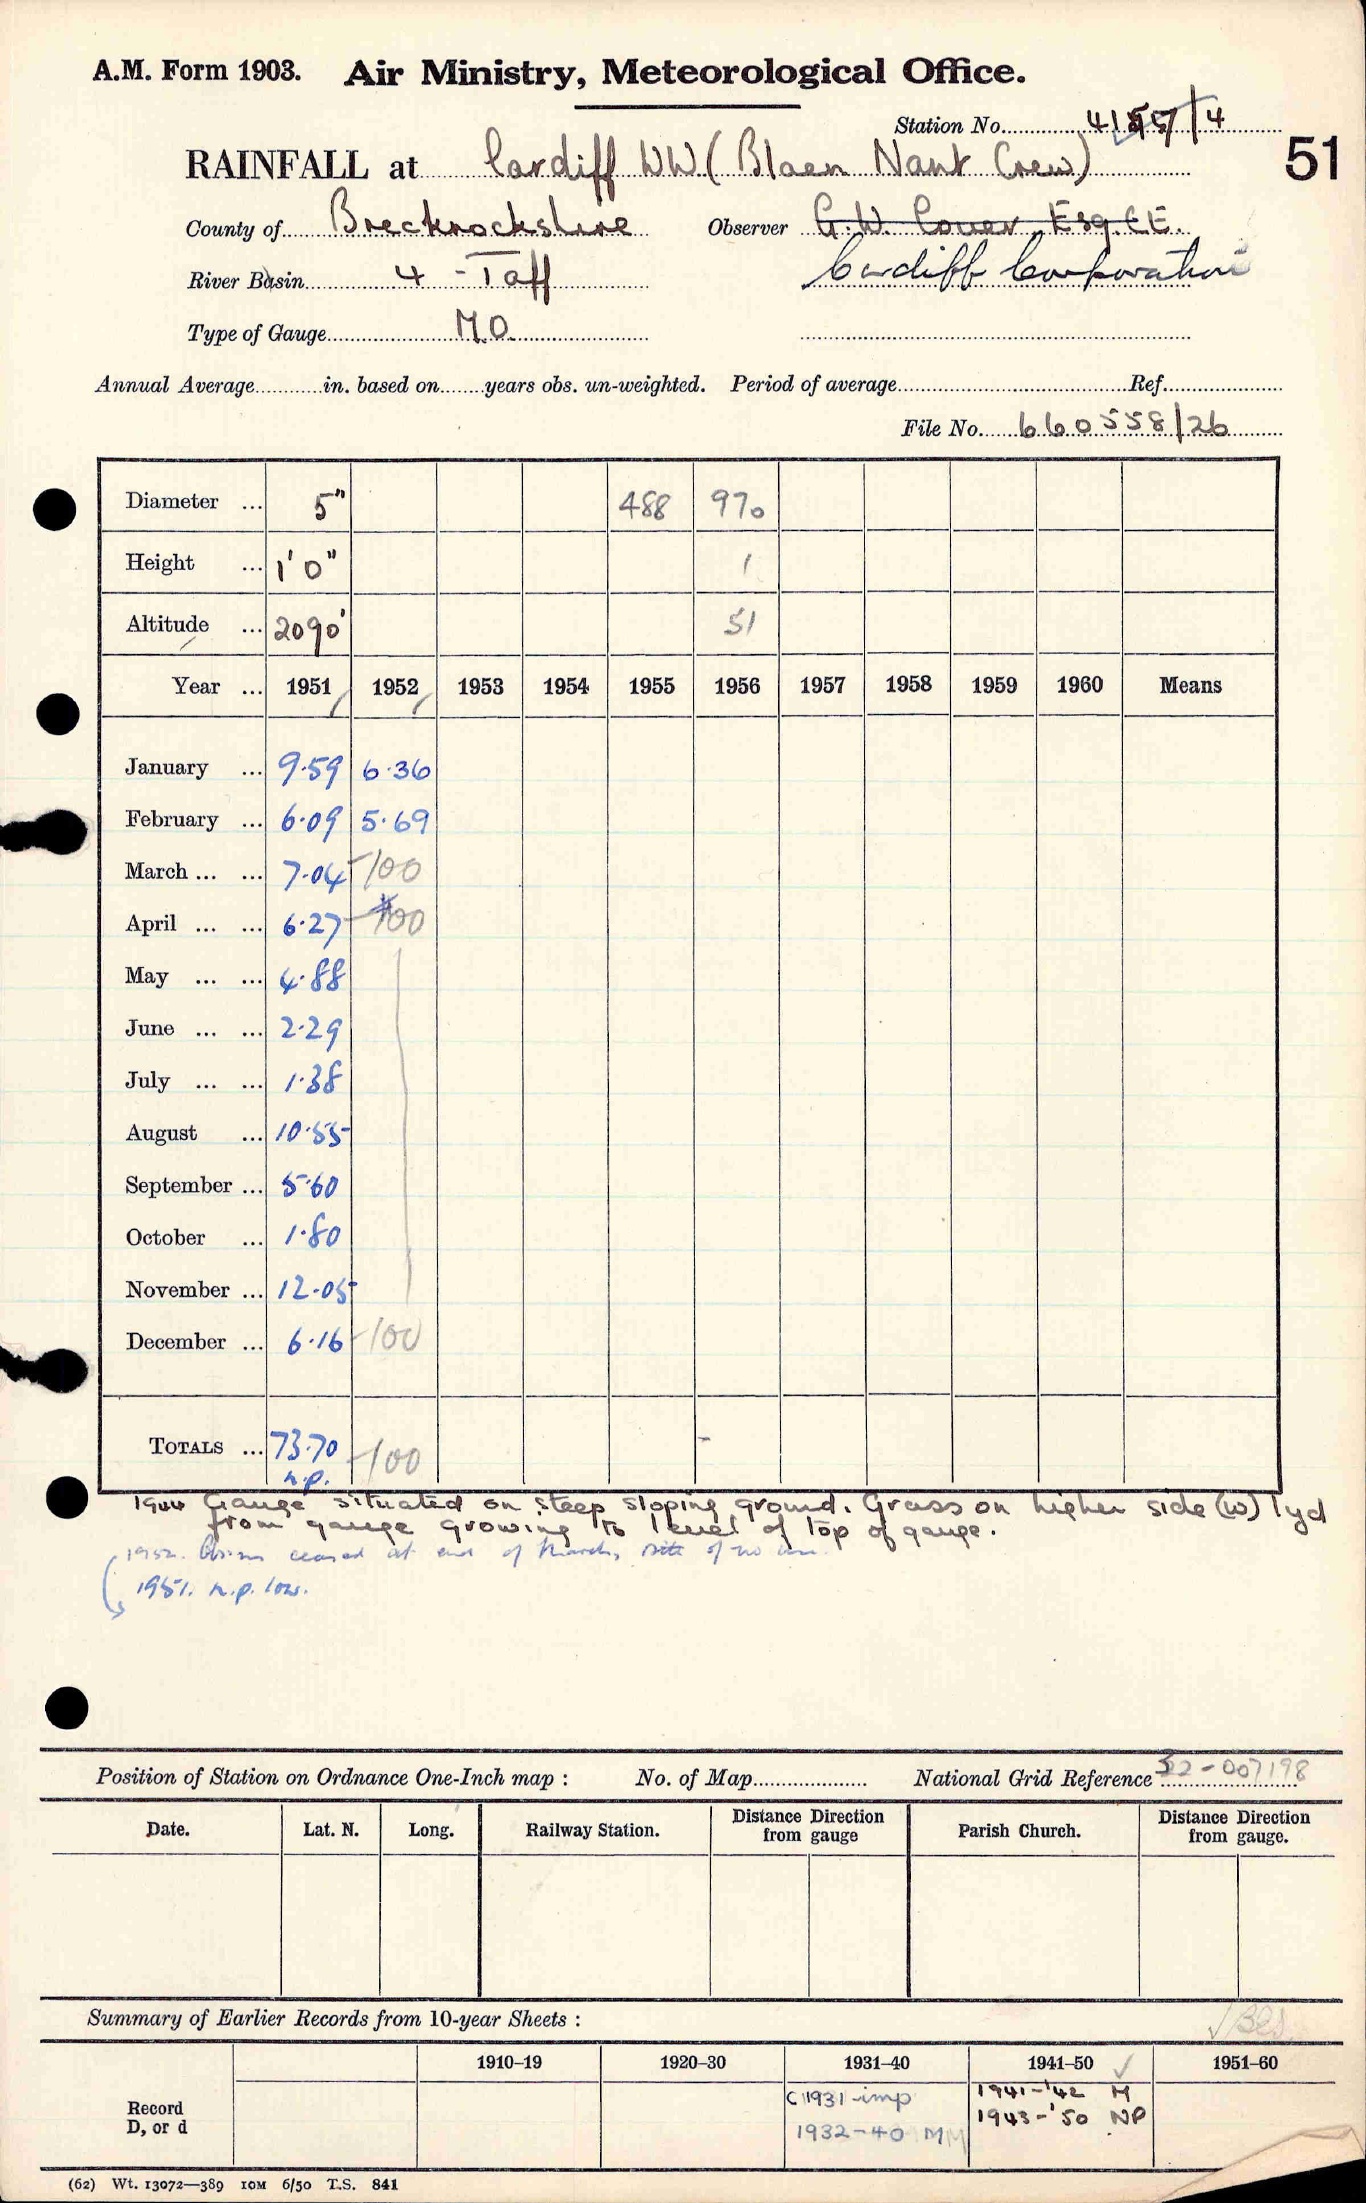 A.M. Form 1903. Air Ministry, Meteorological Office.
Station No. /4
51
RAINFALL at Cardiff WW (Blaen Nant Crew)
County of Brecknockshire Observer G.W. Esq. CE.
River Basin 4 - Taff Cardiff Corporation
Type of Gauge M.O.
Annual Average in. based on years obs. un-weighted. Period of average Ref.
File No. 660558/26
Diameter ... 5" 488 970
Height ... 1' 0" 1
Altitude ... 2090' 51
Year ... 1951 1952 1953 1954 1955 1956 1957 1958 1959 1960 Means
January ... 9.59 6.36
February ... 6.09 5.69
March ... ... 7.04 -100
April ... ... 6.27 -100
May ... ... 4.88
June ... ... 2.29
July ... ... 1.38
August ... 10.55
September ... 5.60
October ... 1.80
November ... 12.05
December ... 6.16 -100
TOTALS ... 73.70 -100
n.p.
1944 Gauge situated on steep sloping ground. Grass on higher side (W) 1yd
from gauge growing to level of top of gauge.
1952. ceased at end of March, site of no use.
1951. n.p. low.
Position of Station on Ordnance One-Inch map : No. of Map National Grid Reference 22-007198
Date. Lat. N. Long. Railway Station. Distance Direction from gauge Parish Church. Distance Direction from gauge.
Summary of Earlier Records from 10-year Sheets :
1910-19 1920-30 1931-40 1941-50 ✓ 1951-60
Record
D, or d
1931 imp 1941-'42 M
1932-40 MM 1943-'50 NP
(62) Wt. 13072—389 10M 6/50 T.S. 841